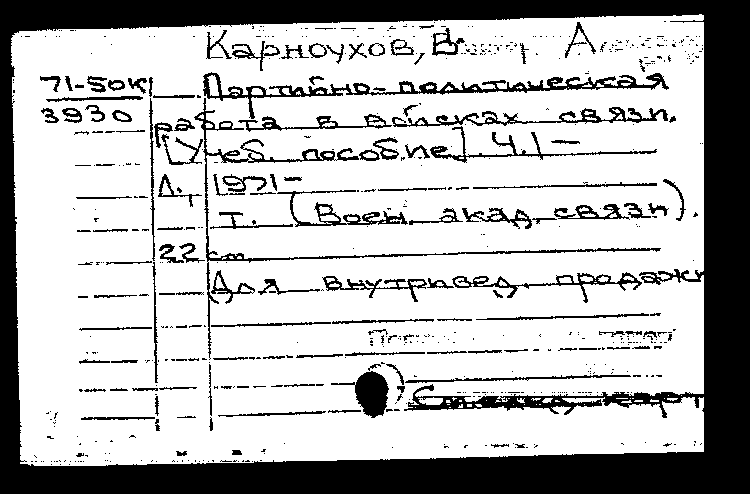 Карноухов, В. А.
71-50к Партийно-политическая
3930 работа в войсках связи.
[Учеб. пособие]. Ч.1 —
Л., 1971—
т. (Воен. акад. связи).
22 см.
Для внутривед. продажи
См. след. карт.